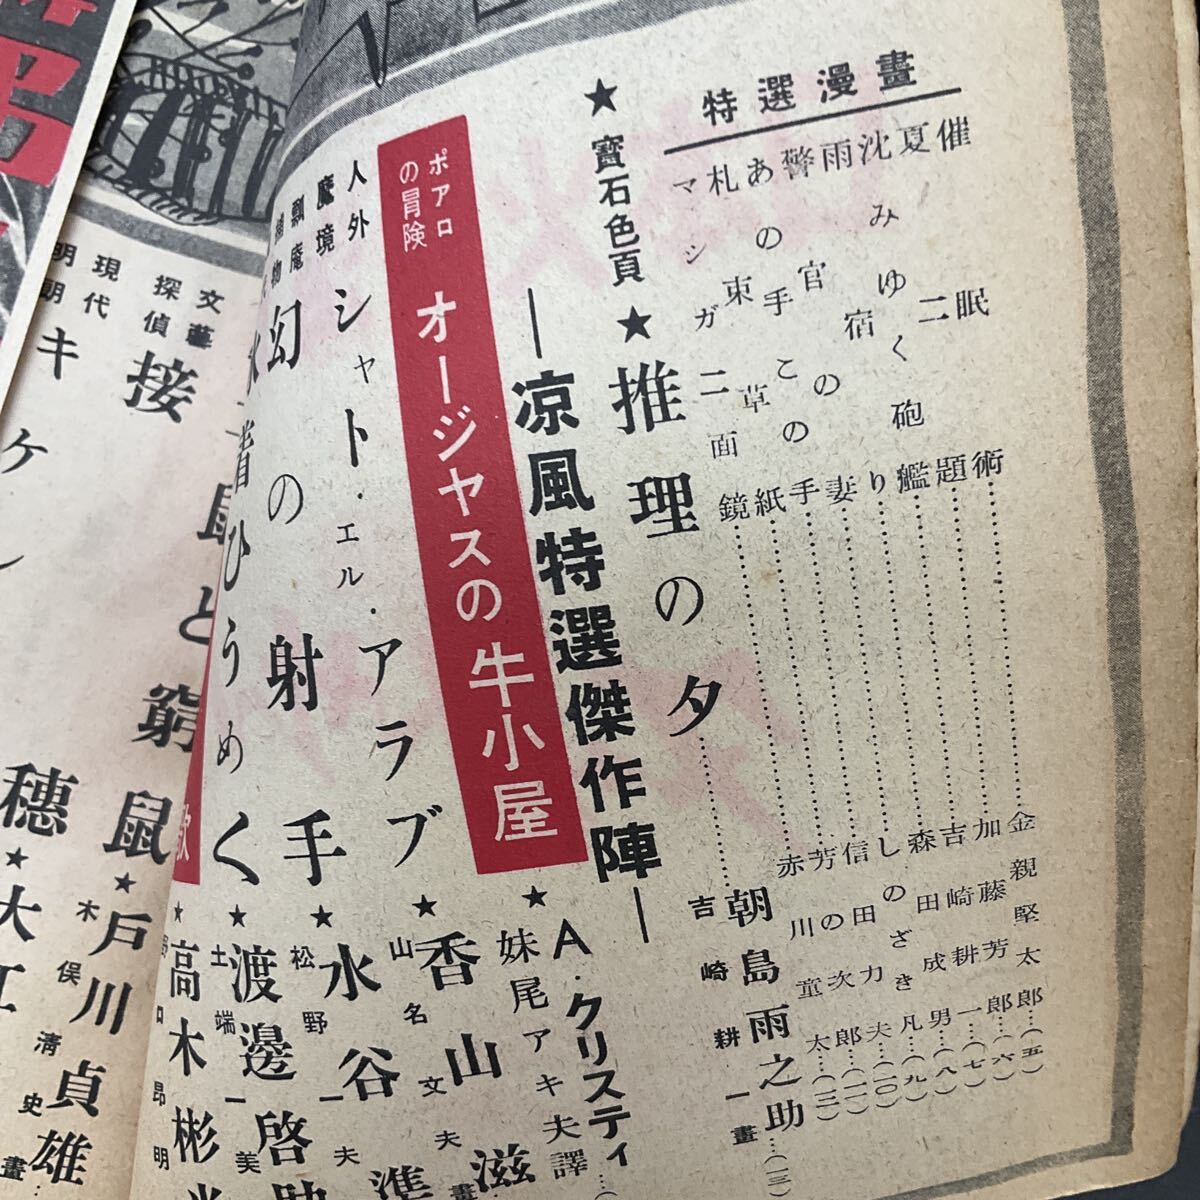 特選漫畫
催眠術……金親堅太郎…(五)
夏二題……加藤芳郎…(六)
沈みゆく砲艦……吉崎耕一…(七)
雨宿り……森田成男…(八)
警官の妻……しのざき凡…(九)
あの手この手……信田力夫…(一〇)
札束草紙……芳の次郎…(一一)
マジシガニ面鏡……赤川童太…(一二)
★寶石色頁★推理の夕……朝島雨之助…(一三)
吉崎耕一畫
―凉風特選傑作陣―
ポアロの冒険 オージヤスの牛小屋★A・クリスティ
妹尾アキ夫譯
人外魔境 シャト・エル・アラブ★香山滋
山名文夫畫
瓢庵捕物 幻の射手★水谷準
松野一夫
ひうめく★渡邊啓助
土端一美
歌★高木彬光
野口昂明
文藝探偵 接
鼠と窮鼠★戸川貞雄
木俣淸史畫
現代
キケン
穗★大江
明朗